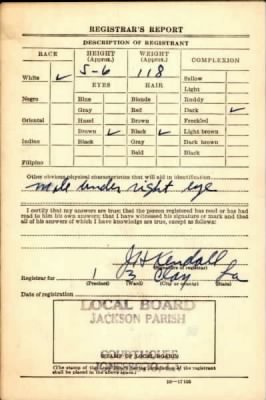 REGISTRAR'S REPORT
DESCRIPTION OF REGISTRANT
RACE HEIGHT (Approx.) WEIGHT (Approx.) COMPLEXION
White ✓ 5-6 118 Sallow
EYES HAIR Light
Negro Blue Blonde Ruddy
Gray Red Dark ✓
Oriental Hazel Brown Freckled
Brown ✓ Black ✓ Light brown
Indian Black Gray Dark brown
Bald Black
Filipino
Other obvious physical characteristics that will aid in identification
mole under right eye
I certify that my answers are true; that the person registered has read or has had
read to him his own answers; that I have witnessed his signature or mark and that
all of his answers of which I have knowledge are true, except as follows:
Kendall
(Signature of registrar)
Registrar for 1 3 Clay La
(Precinct) (Ward) (City or county) (State)
Date of registration
LOCAL BOARD
JACKSON PARISH
COURTHOUSE
JONESBORO, LA.
(STAMP OF LOCAL BOARD)
(The stamp of the Local Board having jurisdiction of the registrant
shall be placed in the above space.)